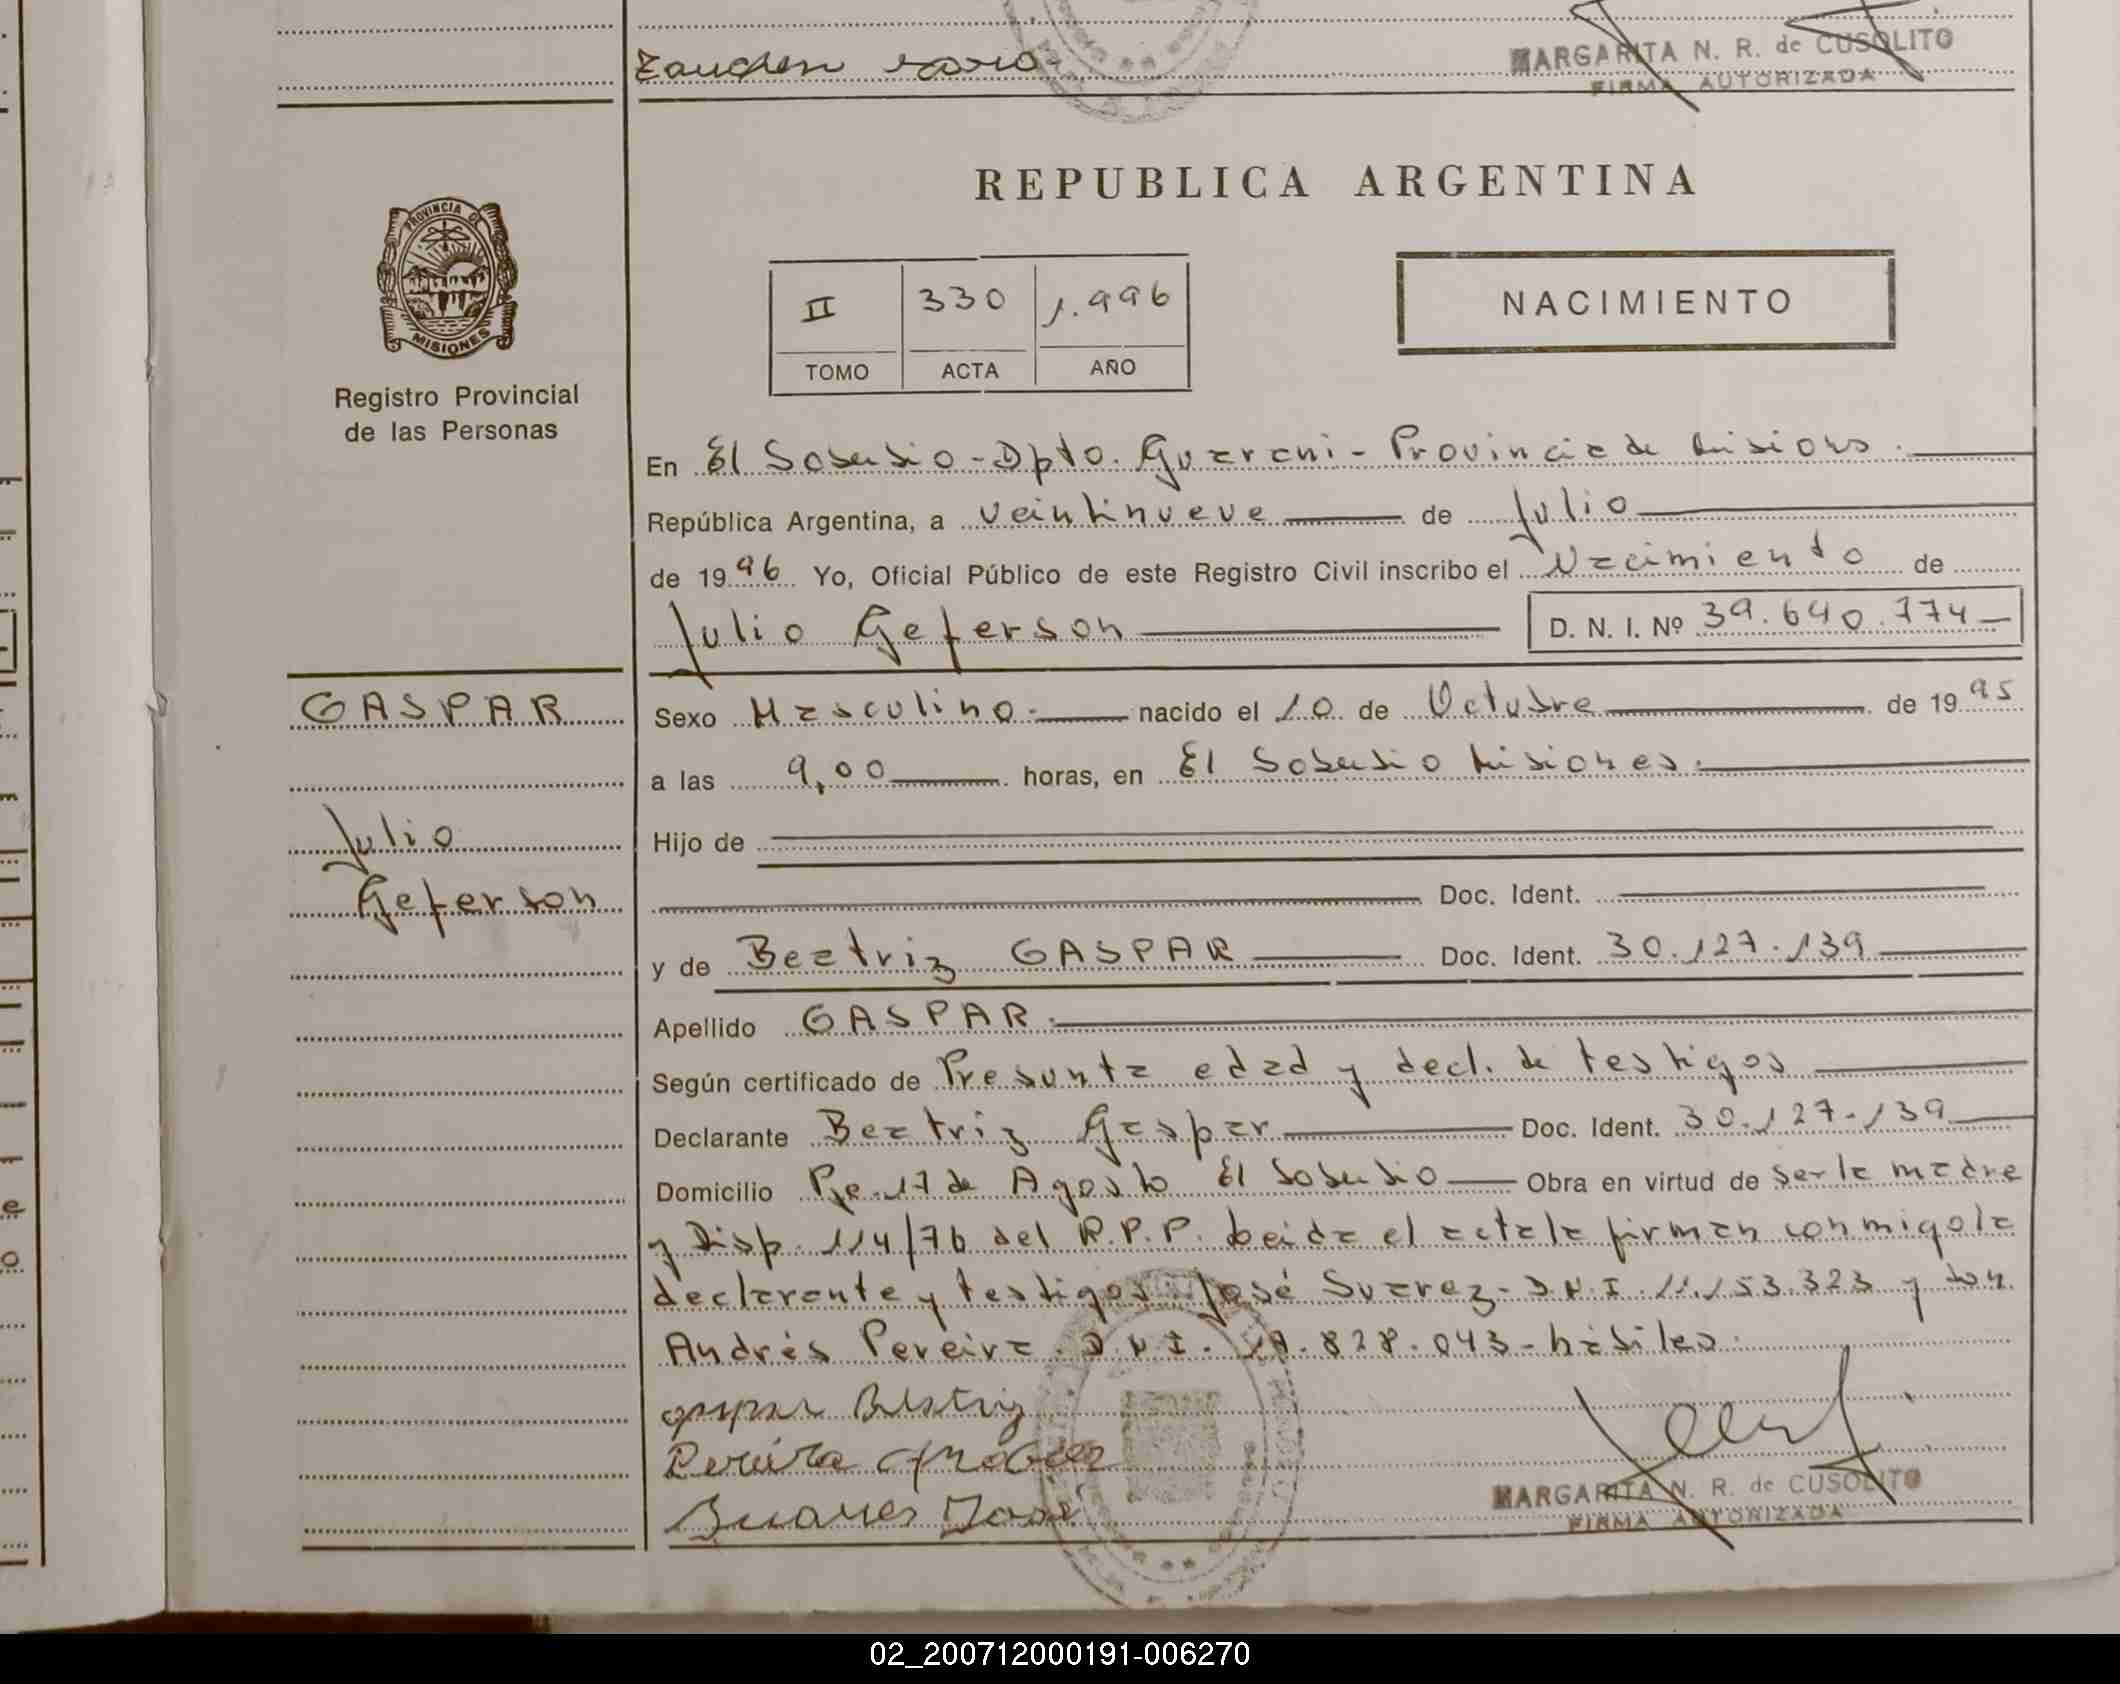 MARGARITA N. R. de CUSOLITO
FIRMA AUTORIZADA
REPUBLICA ARGENTINA
PROVINCIA DE
MISIONES
Registro Provincial
de las Personas
II 330 1.996
TOMO ACTA AÑO
NACIMIENTO
En El Soberbio - Dpto. Guarani - Provincia de Misiones.
República Argentina, a veintinueve de Julio
de 1996 Yo, Oficial Público de este Registro Civil inscribo el Nacimiento de
Julio Geferson D. N. I. Nº 39.640.774
GASPAR
Julio
Geferson
Sexo Masculino. nacido el 10 de Octubre de 1995
a las 9,00 horas, en El Soberbio Misiones.
Hijo de
Doc. Ident.
y de Beatriz GASPAR Doc. Ident. 30.127.139
Apellido GASPAR.
Según certificado de Presunta edad y decl. de testigos
Declarante Beatriz Gaspar Doc. Ident. 30.127.139
Domicilio Pje. 17 de Agosto El Soberbio Obra en virtud de ser la madre
y Disp. 114/76 del R.P.P. Leida el acta la firman conmigo la
declarante y testigos José Suarez - D.N.I. 11.153.323 y don
Andrés Pereira. D.N.I. 18.828.043 - hábiles.
gaspar Beatriz
Pereira Andres
Suares José
MARGARITA N. R. de CUSOLITO
FIRMA AUTORIZADA
02_200712000191-006270